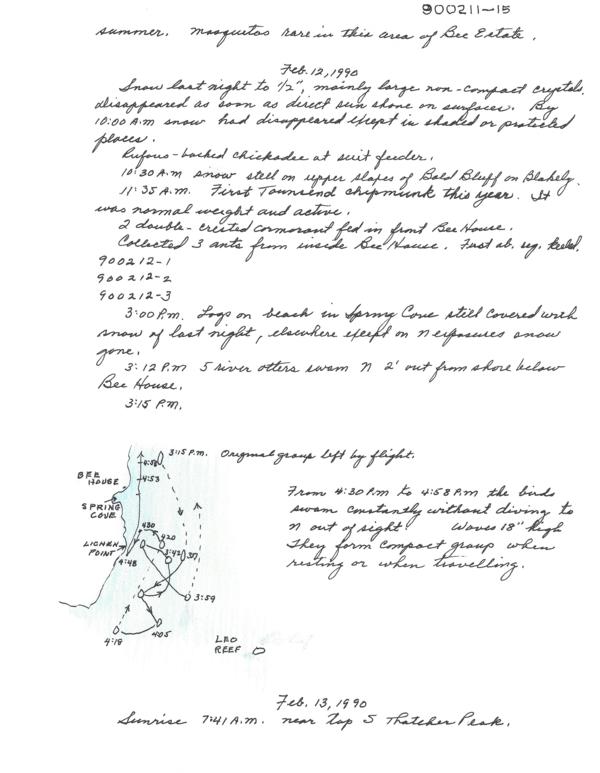 900211-15
summer. Mosquitos rare in this area of Bee Estate.
Feb. 12, 1990
Snow last night to 1/2", mainly large non-compact crystals.
disappeared as soon as direct sun shone on surfaces. By
10:00 A.M snow had disappeared except in shaded or protected
places.
Rufous-backed chickadee at suit feeder.
10:30 A.M snow still on upper slopes of Bald Bluff on Blakely.
11:35 A.M. First Townsend chipmunk this year. It
was normal weight and active.
2 double-crested cormorant fed in front Bee House.
Collected 3 ants from inside Bee House. First ab. seg. keeled.
900212-1
900212-2
900212-3
3:00 P.m. Logs on beach in Spring Cove still covered with
snow of last night, elsewhere except on N exposures snow
gone.
3:12 P.M 5 river otters swam N 2' out from shore below
Bee House.
3:15 P.M.
3:15 P.M. Original group left by flight.
4:58
4:53
BEE HOUSE
SPRING COVE
From 4:30 P.M to 4:58 P.M the birds
swam constantly without diving to
N out of sight Waves 18" high
They form compact group when
resting or when travelling.
430
420
LICHEN POINT
3:42
317
4:48
3:59
4:18
405
LEO REEF
Feb. 13, 1990
Sunrise 7:41 A.M. near top S Thatcher Peak.